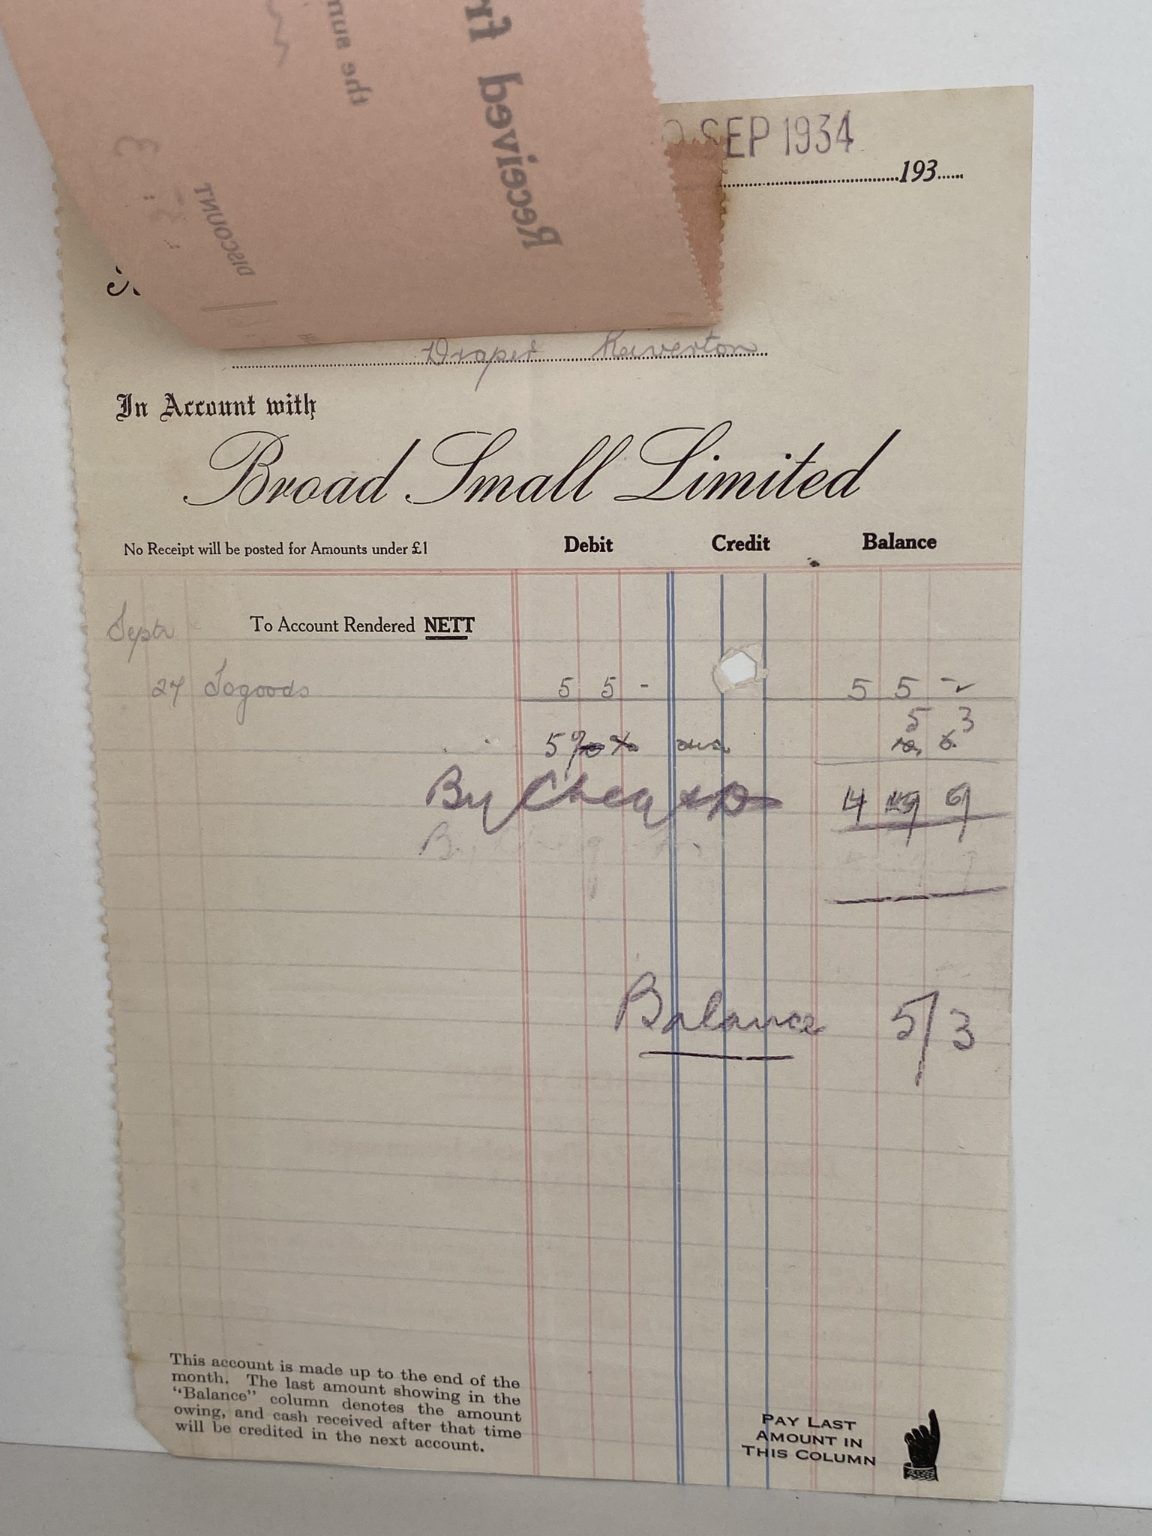 Received
the sum
DISCOUNT
3
SEP 1934
193
Draper Riverton
In Account with
Broad Small Limited
No Receipt will be posted for Amounts under £1 Debit Credit Balance
Septr To Account Rendered NETT
27 Togoods 5 5 - 5 5 -
5 3
5%
By Cheq 4 19 9
Balance 5/3
This account is made up to the end of the
month. The last amount showing in the
"Balance" column denotes the amount
owing, and cash received after that time
will be credited in the next account.
PAY LAST
AMOUNT IN
THIS COLUMN